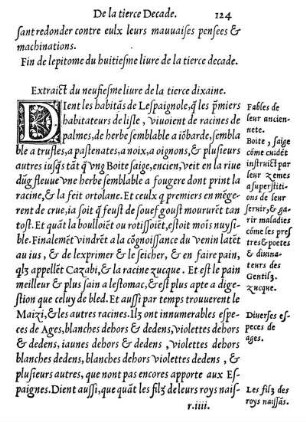 De la tierce Decade. 124
sant redonder contre eulx leurs mauuaises pensees &
machinations.
Fin de lepitome du huitiesme liure de la tierce decade.
Extraict du neufiesme liure de la tierce dixaine.
DIent les habitãs de Lespaignole, q̃ les p̃miers
habitateurs de lisle, viuoient de racines de
palmes, de herbe semblable a iõbarde, sembla
ble a trufles, a pastenates, a noix, a oignons, & plusieurs
autres iusq̃s tãt q̃ vng Boite saige, encien, veit en la riue
dũg fleuue vne herbe semblable a fougere dont print la
racine, & la feit ortolane. Et ceulx q premiers en mẽge-
rent de crue, ia soit q̃ feust de souef goust mouruẽt tan
tost. Et quãt la boulloiẽt ou rotissoiẽt, estoit mois nuysi
ble. Finalemẽt vindrẽt a la cõgnoissance du venin latẽt
au ius, & de lexprimer & le seicher, & en faire pain,
qlz appellẽt Cazabi, & la racine zucque. Et est le pain
meilleur & plus sain a lestomac, & est plus apte a dige-
stion que celuy de bled. Et aussi par temps trouuerent le
Maizi, & les autres racines. Ilz ont innumerables espe-
ces de Ages, blanches dehors & dedens, violettes dehors
& dedens, iaunes dehors & dedens, violettes dehors
blanches dedens, blanches dehors violettes dedens, &
plusieurs autres, que nont pas encores apporte aux Es-
paignes. Dient aussi, que quãt les filz de leurs roys nais-
r.iiii.
Fables de
leur ancien-
nete.
Boite, saige
cõme cuidẽt
instruict par
leur zemes
a superstiti-
ons de leur
seruir, & ga-
rir maladies
cõme ses pres
tres & poetes
& diuina-
teurs des
Gentilz.
zucque.
Diuerses es-
peces de
ages.
Les filz des
roys naissãs.